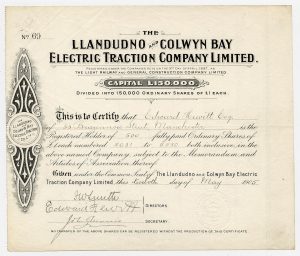 THE
No 69
LLANDUDNO AND COLWYN BAY
ELECTRIC TRACTION COMPANY LIMITED.
THE LIGHT RAILWAY AND GENERAL CONSTRUCTION COMPANY LIMITED
CAPITAL £150,000
DIVIDED INTO 150,000 ORDINARY SHARES OF £1 EACH.
This is to Certify that Edward Hewitt Esq
Street, Manchester is the
Registered Holder of 500 fully paid Ordinary Shares of
£1 each numbered to both inclusive, in the
above named Company, subject to the Memorandum and
Articles of Association thereof.
Given under the Common Seal of The Llandudno and Colwyn Bay Electric
Traction Company Limited, this day of May 1905
Edward Hewitt
DIRECTORS.
SECRETARY.
NO TRANSFER OF THE ABOVE SHARES CAN BE REGISTERED WITHOUT THE PRODUCTION OF THIS CERTIFICATE.